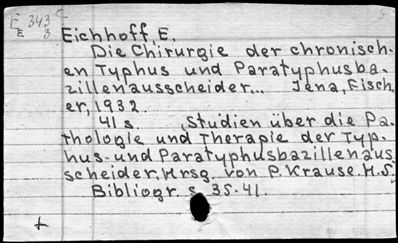 F 343
E 3
Eichhoff, E.
Die Chirurgie der chronisch-
en Typhus und Paratyphusba-
zillenausscheider... Jena, Fisch-
er, 1932.
41 s. (Studien über die Pa-
thologie und Therapie der Typ-
hus- und Paratyphusbazillenaus
scheider. Hrsg. von P. Krause. H. 5)
Bibliogr. s. 35-41.